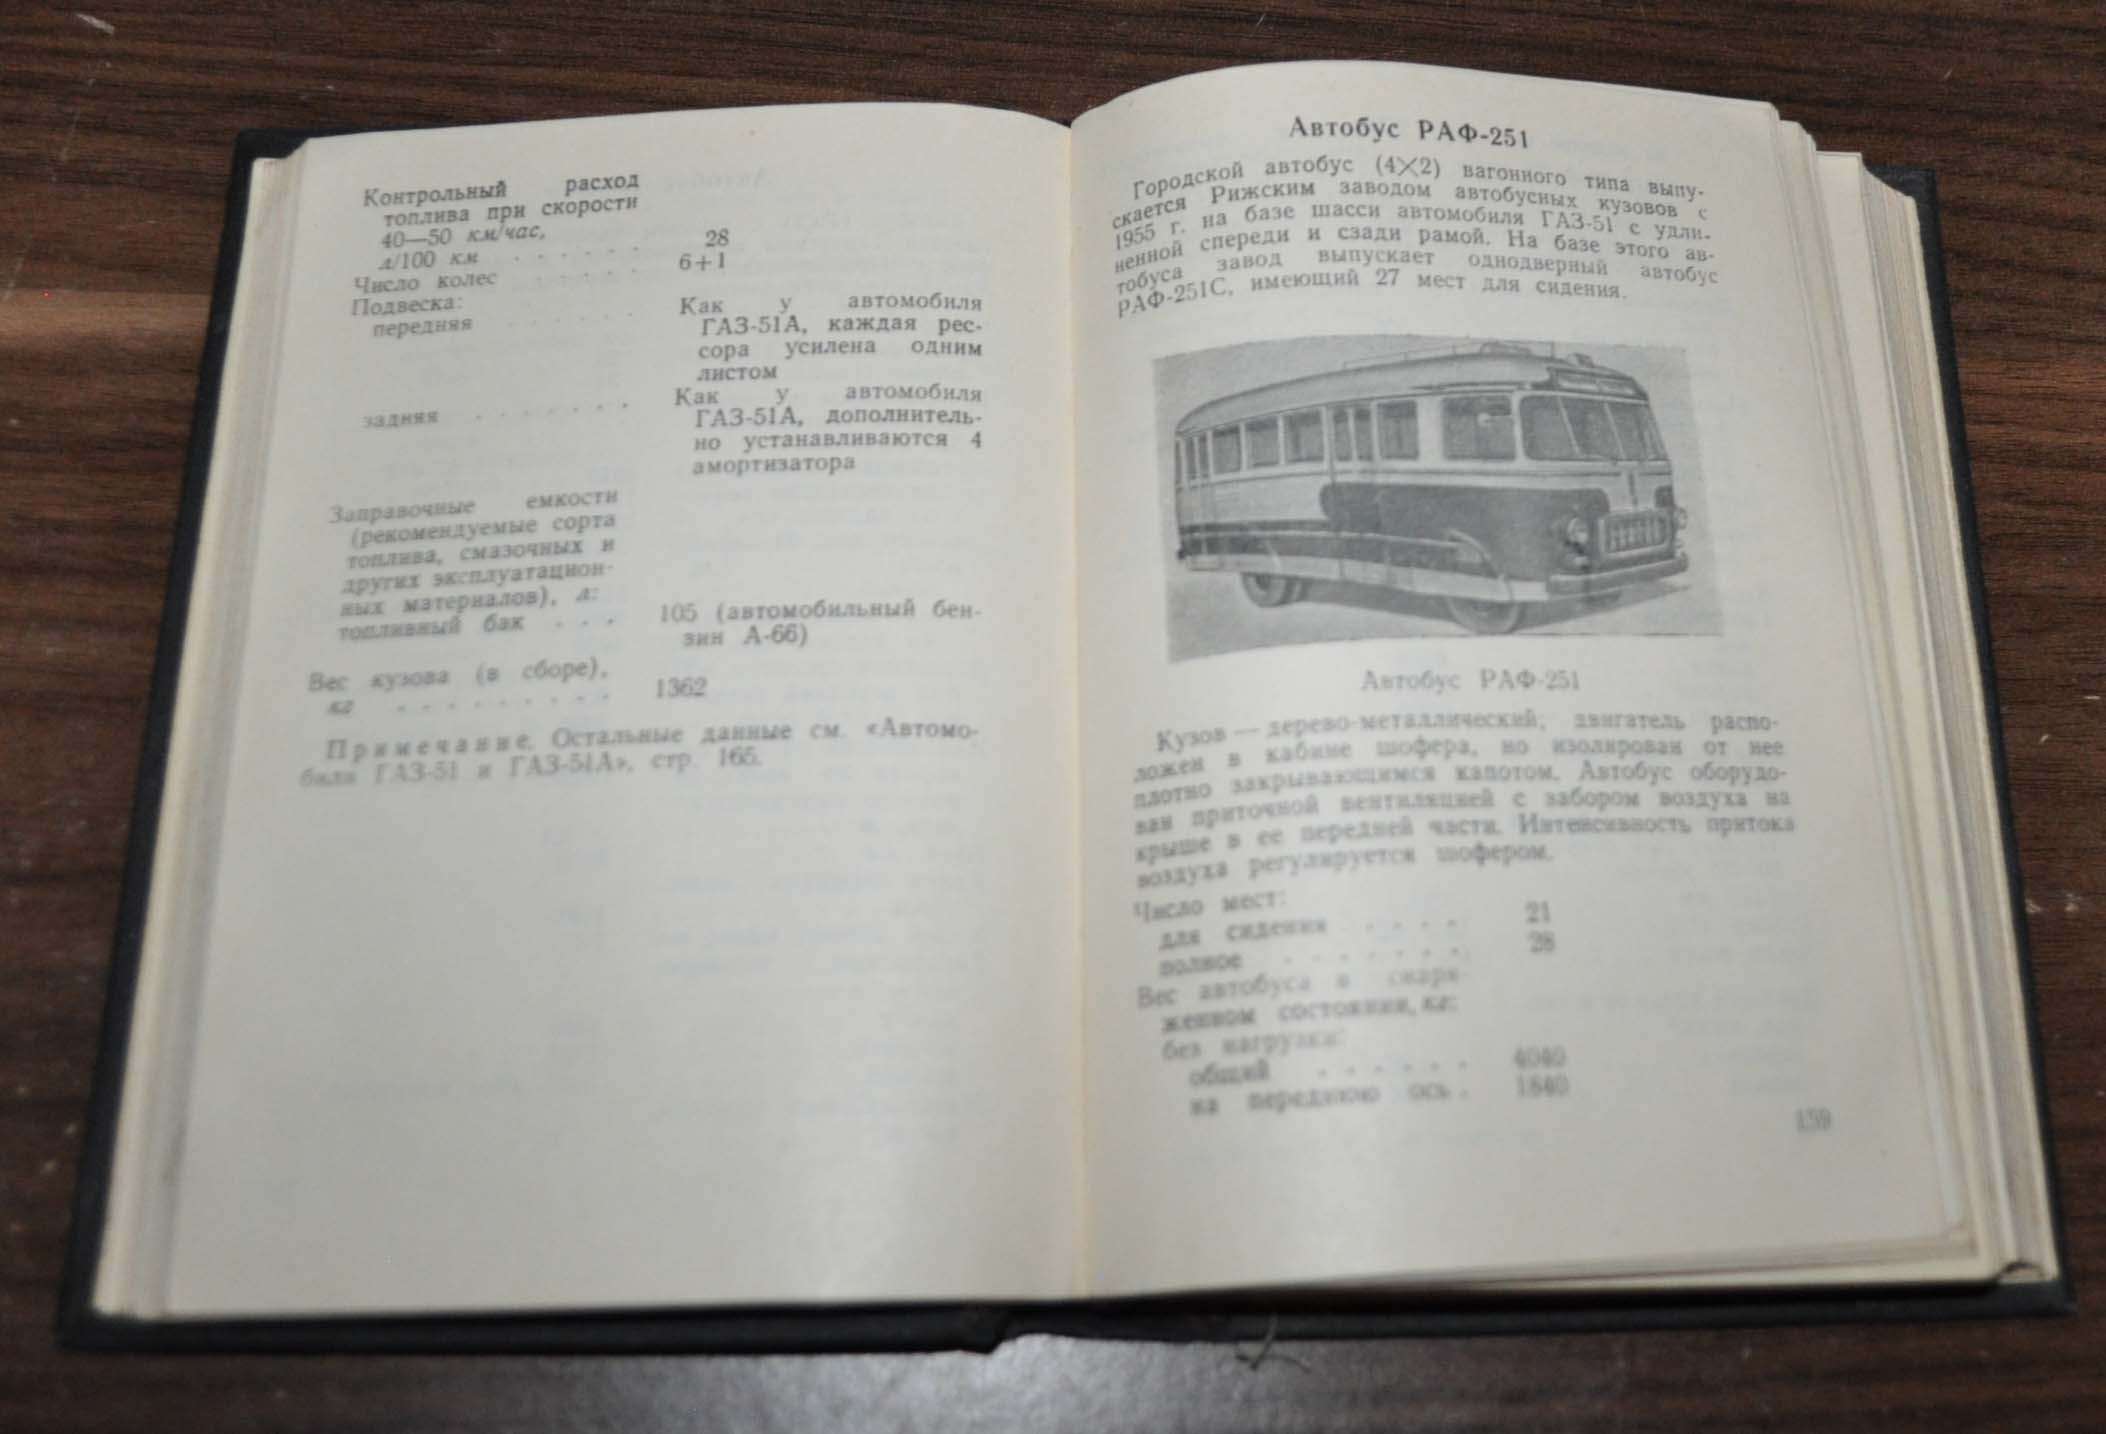 Контрольный расход
топлива при скорости
40—50 км/час,
л/100 км . . . . . . 28
Число колес . . . . . 6+1
Подвеска:
передняя . . . . . . Как у автомобиля
ГАЗ-51А, каждая рес-
сора усилена одним
листом
задняя . . . . . . . Как у автомобиля
ГАЗ-51А, дополнитель-
но устанавливаются 4
амортизатора
Заправочные емкости
(рекомендуемые сорта
топлива, смазочных и
других эксплуатацион-
ных материалов), л:
топливный бак . . . 105 (автомобильный бен-
зин А-66)
Вес кузова (в сборе),
кг . . . . . . . . . 1362
Примечание. Остальные данные см. «Автомо-
били ГАЗ-51 и ГАЗ-51А», стр. 165.
Автобус РАФ-251
Городской автобус (4×2) вагонного типа выпу-
скается Рижским заводом автобусных кузовов с
1955 г. на базе шасси автомобиля ГАЗ-51 с удли-
ненной спереди и сзади рамой. На базе этого ав-
тобуса завод выпускает однодверный автобус
РАФ-251С, имеющий 27 мест для сидения.
Автобус РАФ-251
Кузов — дерево-металлический; двигатель распо-
ложен в кабине шофера, но изолирован от нее
плотно закрывающимся капотом. Автобус оборудо-
ван приточной вентиляцией с забором воздуха на
крыше в ее передней части. Интенсивность притока
воздуха регулируется шофером.
Число мест:
для сидения . . . . 21
полное . . . . . . . 28
Вес автобуса в снаря-
женном состоянии, кг:
без нагрузки:
общий . . . . . . 4040
на переднюю ось . 1840
159